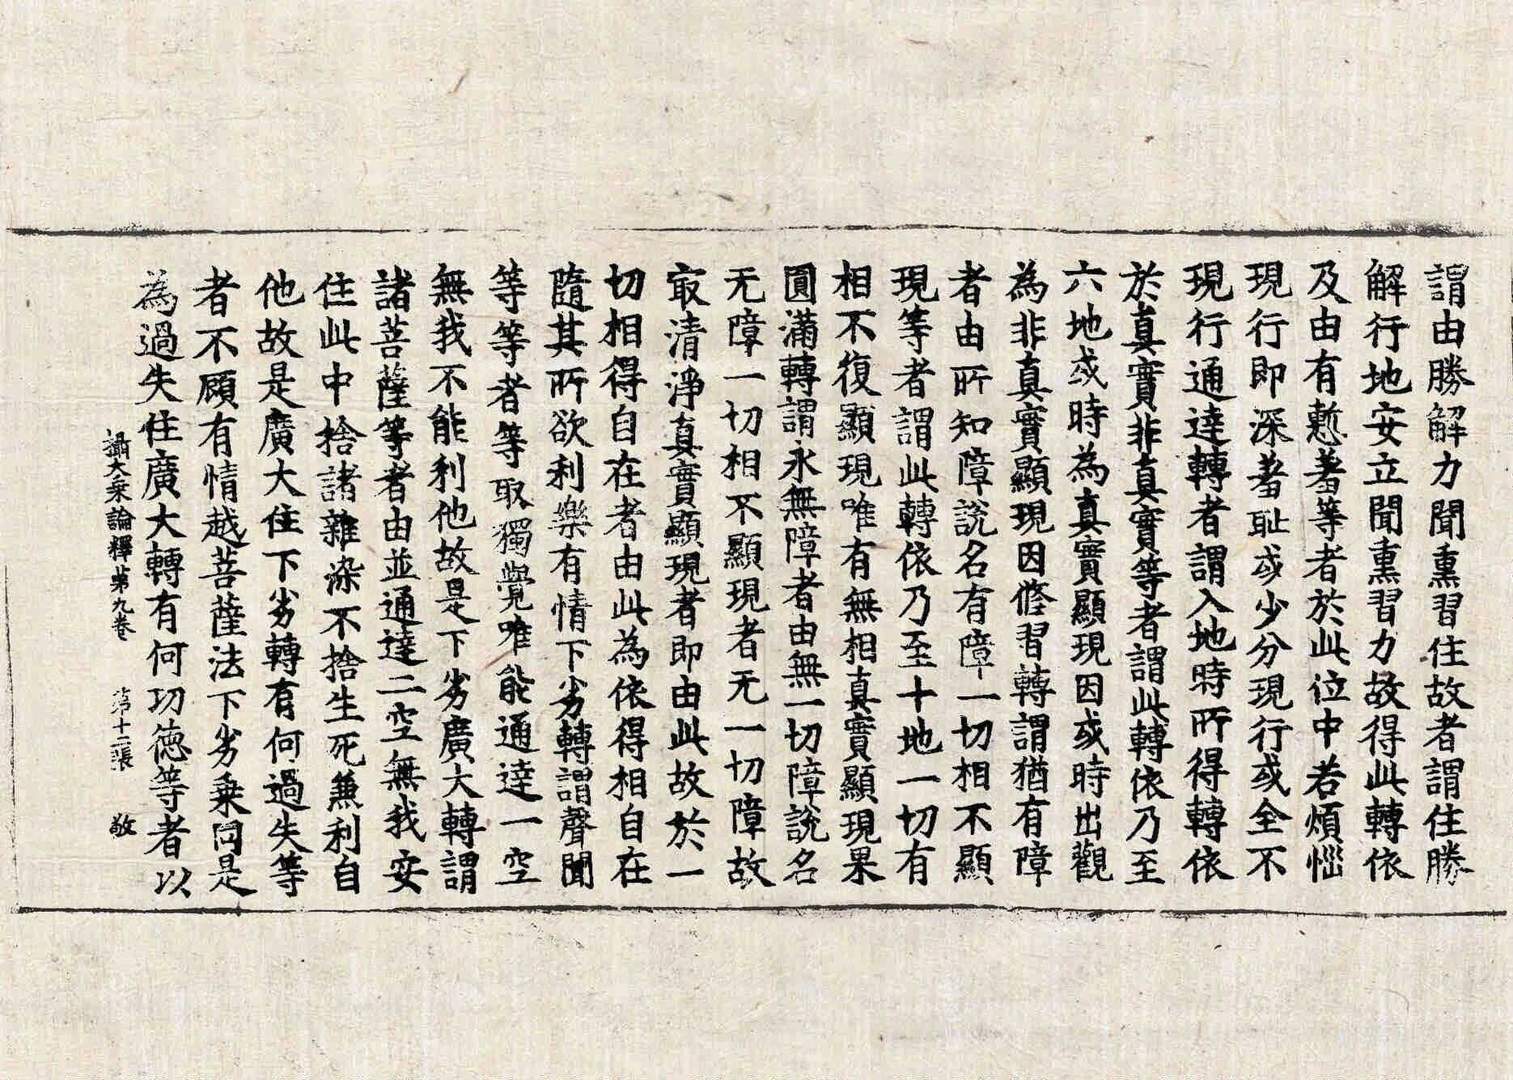 謂由勝解力聞熏習住故者謂住勝
解行地安立聞熏習力故得此轉依
及由有慙羞等者於此位中若煩惱
現行即深羞耻或少分現行或全不
現行通達轉者謂入地時所得轉依
於真實非真實等者謂此轉依乃至
六地或時為真實顯現因或時出觀
為非真實顯現因修習轉謂猶有障
者由所知障說名有障一切相不顯
現等者謂此轉依乃至十地一切有
相不復顯現唯有無相真實顯現果
圓滿轉謂永無障者由無一切障說名
无障一切相不顯現者无一切障故
㝡清淨真實顯現者即由此故於一
切相得自在者由此為依得相自在
隨其所欲利樂有情下劣轉謂聲聞
等等者等取獨覺唯能通達一空
無我不能利他故是下劣廣大轉謂
諸菩薩等者由並通達二空無我安
住此中捨諸雜染不捨生死兼利自
他故是廣大住下劣轉有何過失等
者不顧有情越菩薩法下劣乘同是
為過失住廣大轉有何功德等者以
攝大乘論釋第九卷 第十二張 敬